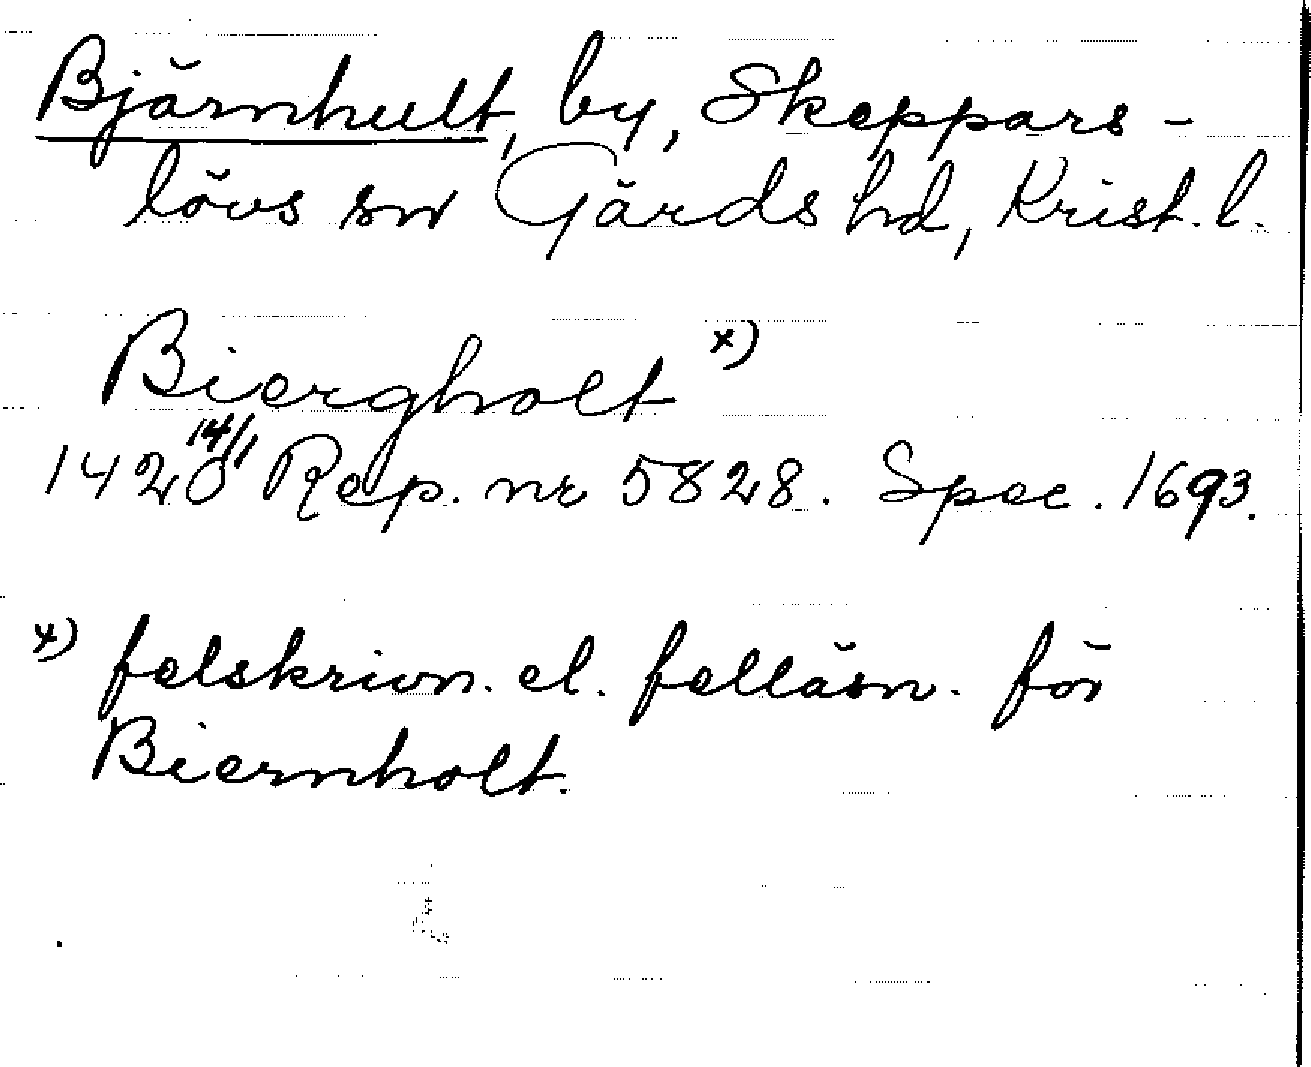 Bjärnhult, by, Skeppars-
lövs sn Gärds hd, Krist. l.
Biergholt x)
1420 14/1 Rep. nr 5828. Spec. 1693.
x) felskrivn. el. felläsn. för
Biernholt.